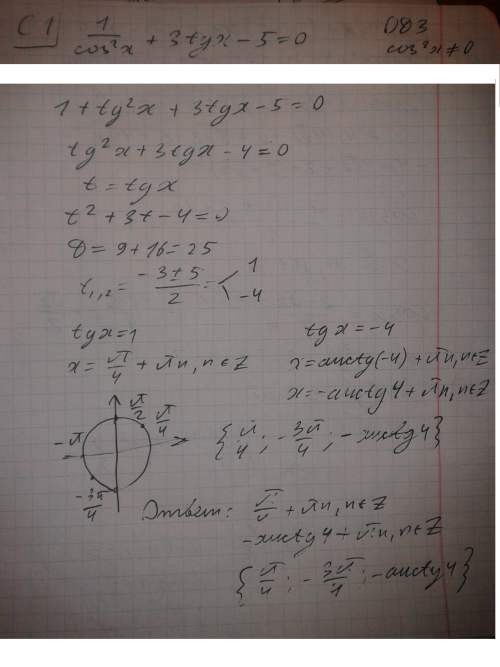 C1 1/cos²x + 3tgx - 5 = 0 ОДЗ
cos²x ≠ 0
1 + tg²x + 3tgx - 5 = 0
tg²x + 3tgx - 4 = 0
t = tgx
t² + 3t - 4 = 0
D = 9 + 16 = 25
t₁,₂ = (-3 ± 5)/2 = 1
-4
tgx = 1 tgx = -4
x = π/4 + πn, n∈Z x = arctg(-4) + πn, n∈Z
x = -arctg4 + πn, n∈Z
π/2 π/4
-π
-3π/4
{π/4; -3π/4; -arctg4}
Ответ: π/4 + πn, n∈Z
-arctg4 + πn, n∈Z
{π/4; -3π/4; -arctg4}